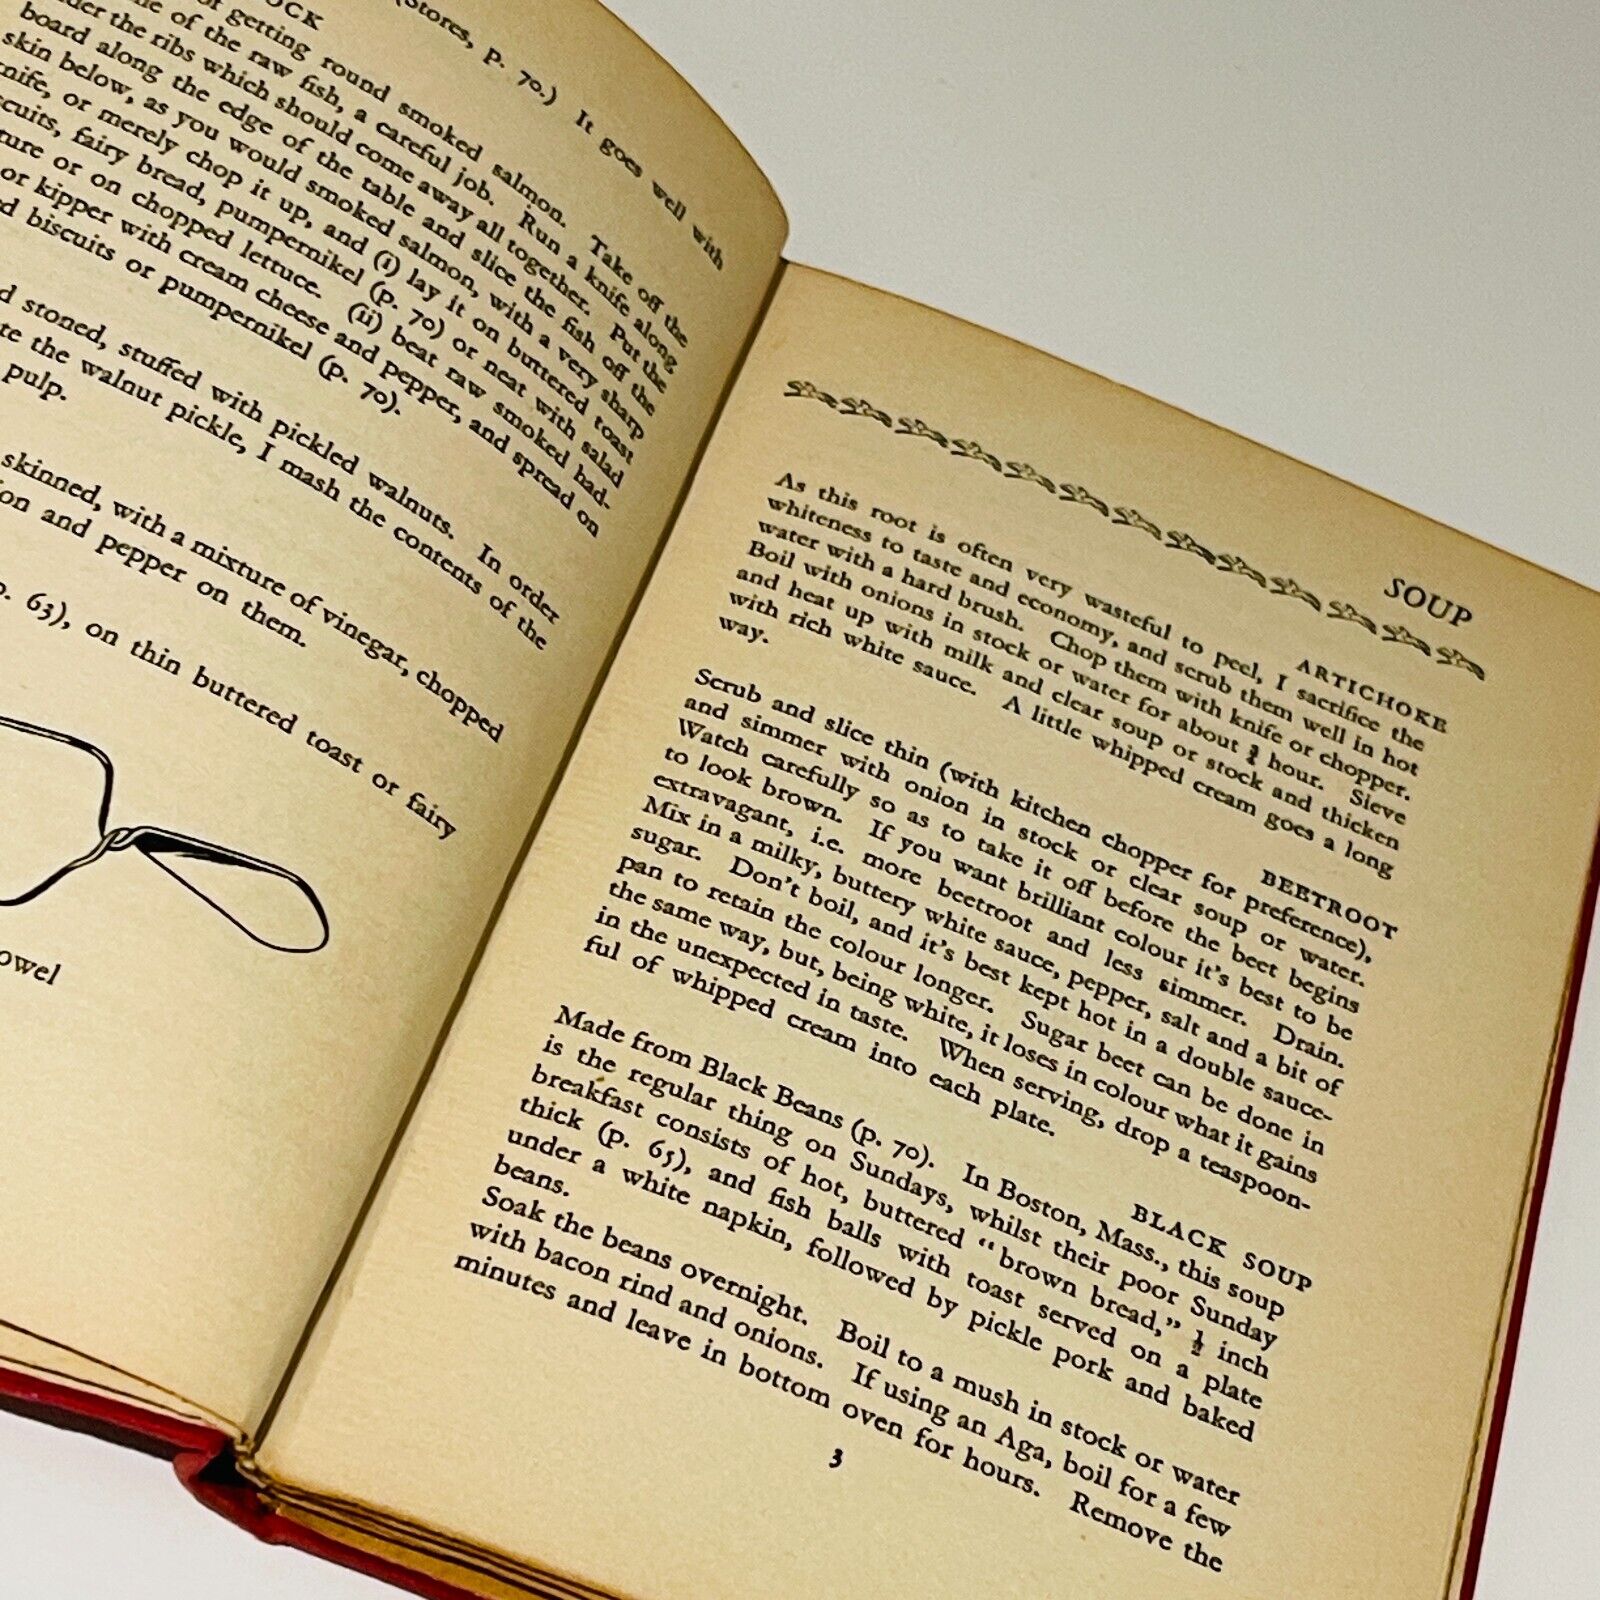 OCK
(Stores, p. 70.) It goes well with
of getting round smoked salmon. Take off the
of the raw fish, a careful job. Run a knife along
the ribs which should come away all together. Put the
board along the edge of the table and slice the fish off the
skin below, as you would smoked salmon, with a very sharp
or merely chop it up, and (i) lay it on buttered toast
fairy bread, pumpernikel (p. 70) or neat with salad
or on chopped lettuce. (ii) beat raw smoked had-
or kipper with cream cheese and pepper, and spread on
biscuits or pumpernikel (p. 70).
stoned, stuffed with pickled walnuts. In order
the walnut pickle, I mash the contents of the
pulp.
skinned, with a mixture of vinegar, chopped
and pepper on them.
p. 63), on thin buttered toast or fairy
owel
SOUP
ARTICHOKE
As this root is often very wasteful to peel, I sacrifice the
whiteness to taste and economy, and scrub them well in hot
water with a hard brush. Chop them with knife or chopper.
Boil with onions in stock or water for about ¾ hour. Sieve
and heat up with milk and clear soup or stock and thicken
with rich white sauce. A little whipped cream goes a long
way.
BEETROOT
Scrub and slice thin (with kitchen chopper for preference),
and simmer with onion in stock or clear soup or water.
Watch carefully so as to take it off before the beet begins
to look brown. If you want brilliant colour it's best to be
extravagant, i.e. more beetroot and less simmer. Drain.
Mix in a milky, buttery white sauce, pepper, salt and a bit of
sugar. Don't boil, and it's best kept hot in a double sauce-
pan to retain the colour longer. Sugar beet can be done in
the same way, but, being white, it loses in colour what it gains
in the unexpected in taste. When serving, drop a teaspoon-
ful of whipped cream into each plate.
BLACK SOUP
Made from Black Beans (p. 70). In Boston, Mass., this soup
is the regular thing on Sundays, whilst their poor Sunday
breakfast consists of hot, buttered "brown bread," ½ inch
thick (p. 65), and fish balls with toast served on a plate
under a white napkin, followed by pickle pork and baked
beans.
Soak the beans overnight. Boil to a mush in stock or water
with bacon rind and onions. If using an Aga, boil for a few
minutes and leave in bottom oven for hours. Remove the
3